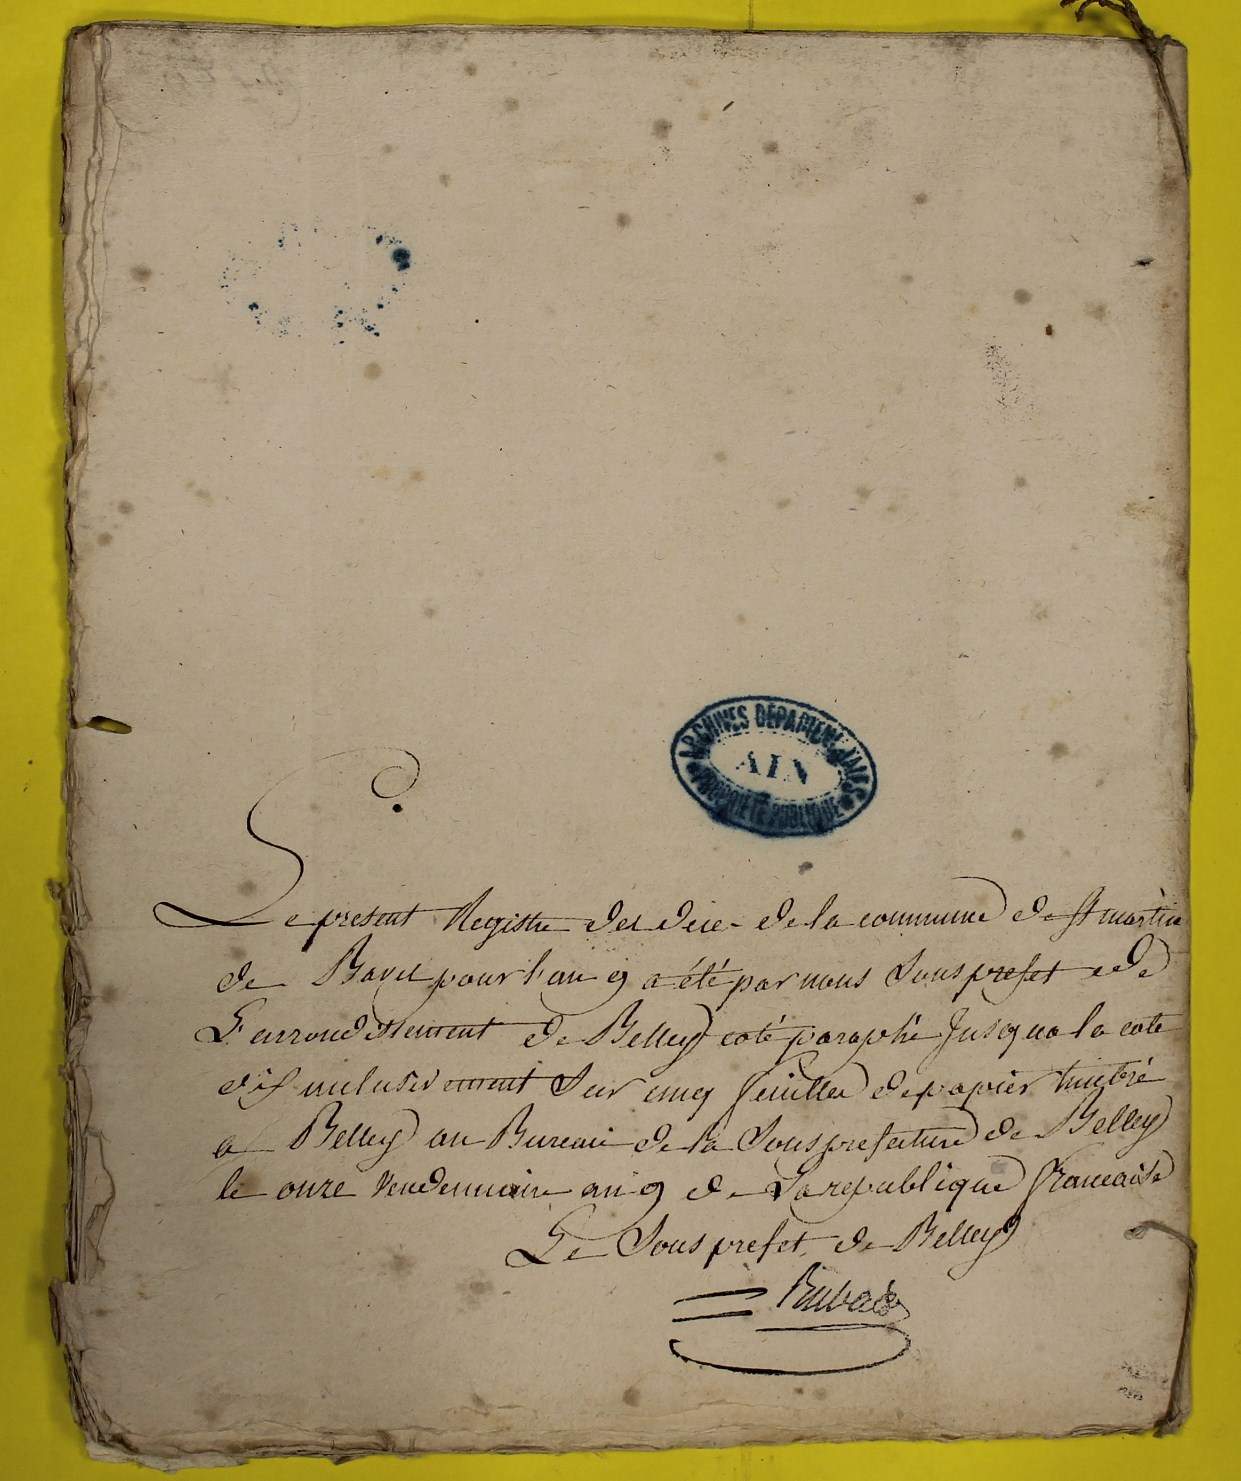 ARCHIVES DÉPARTEMENTALES
AIN
PROPRIÉTÉ PUBLIQUE
Le present Registre des déce- de la commune de St martin
de Bavel pour l'an 9 a été par nous Sous prefet de
L'arrondissement de Belley coté paraphé Jusqua la cote
dix inclusivement Sur cinq feuilles de papier timbré
a Belley au Bureau de la Sous prefecture de Belley
le onze Vendemiaire an 9 de La republique francaise
Le Sous prefet de Belley